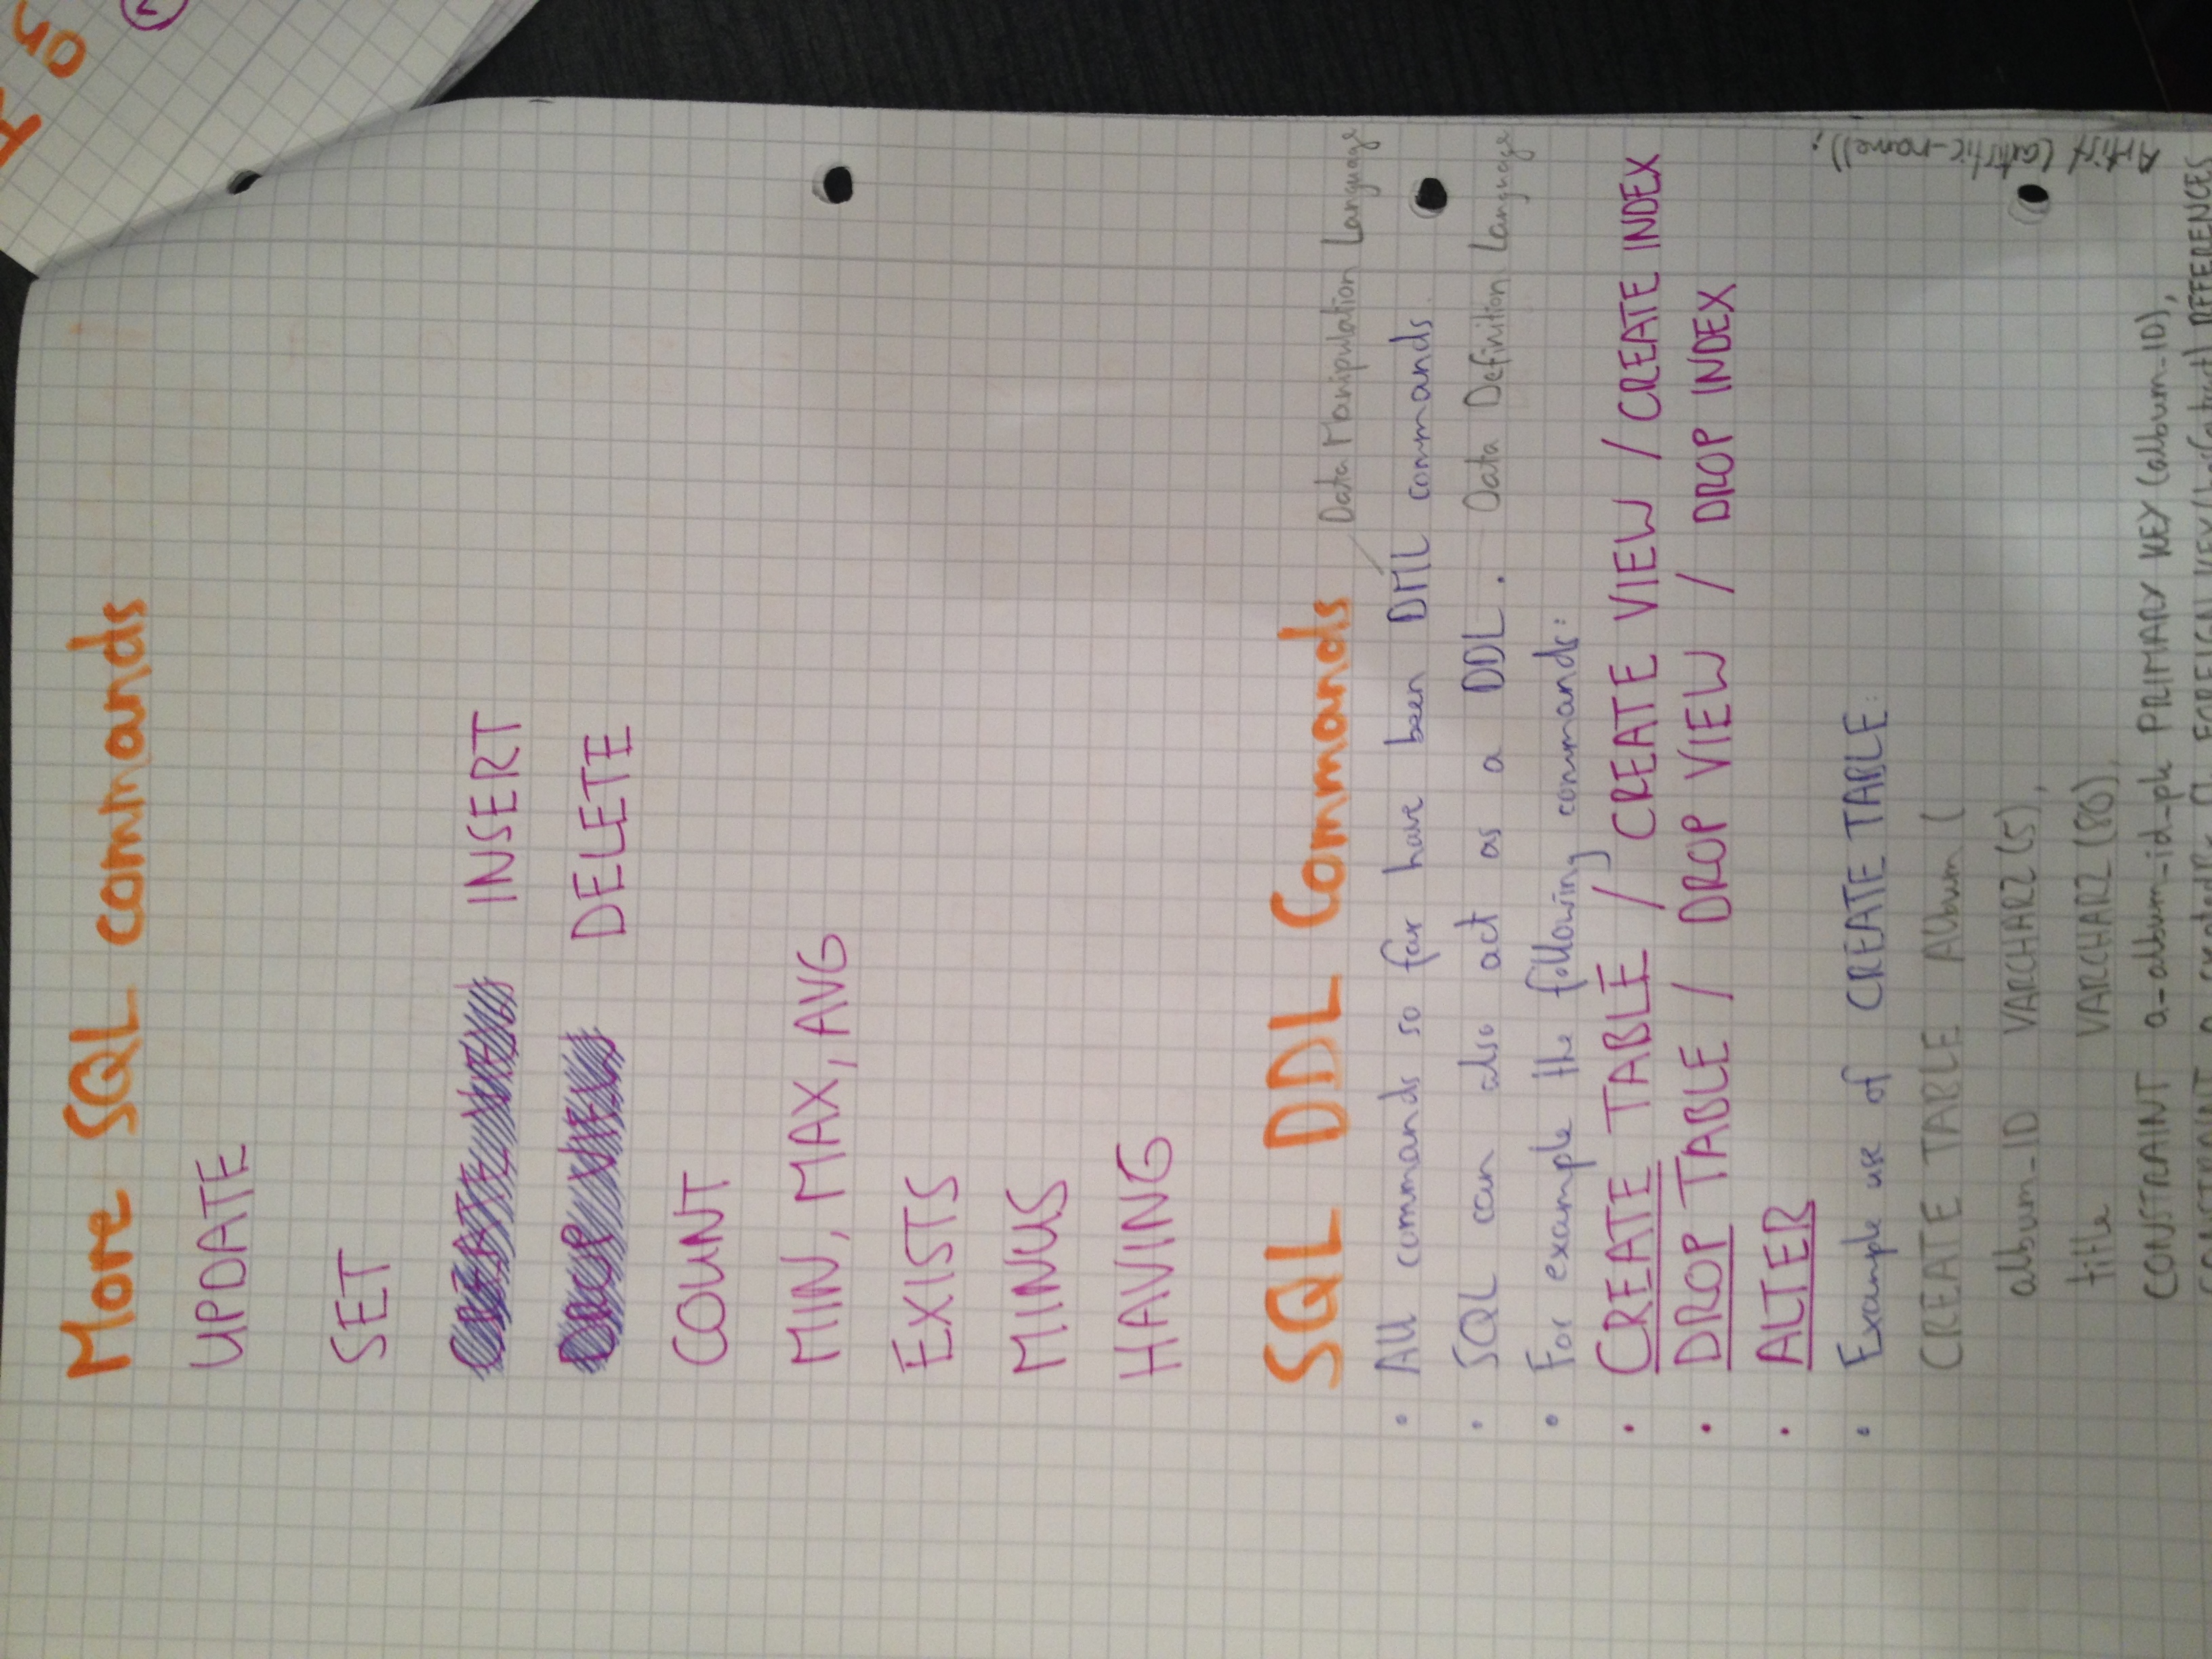 More SQL commands
UPDATE
SET
CREATE VIEW INSERT
DROP VIEW DELETE
COUNT
MIN, MAX, AVG
EXISTS
MINUS
HAVING
SQL DDL Commands
Data Manipulation Language
• All commands so far have been DML commands.
• SQL can also act as a DDL. Data Definition Language
• For example the following commands:
• CREATE TABLE / CREATE VIEW / CREATE INDEX
• DROP TABLE / DROP VIEW / DROP INDEX
• ALTER
• Example use of CREATE TABLE:
CREATE TABLE Album (
album_ID VARCHAR2(5),
title VARCHAR2(80),
CONSTRAINT a_album_id_pk PRIMARY KEY (album_ID),
CONSTRAINT FOREIGN KEY REFERENCES
Artist (artistic_name));
on